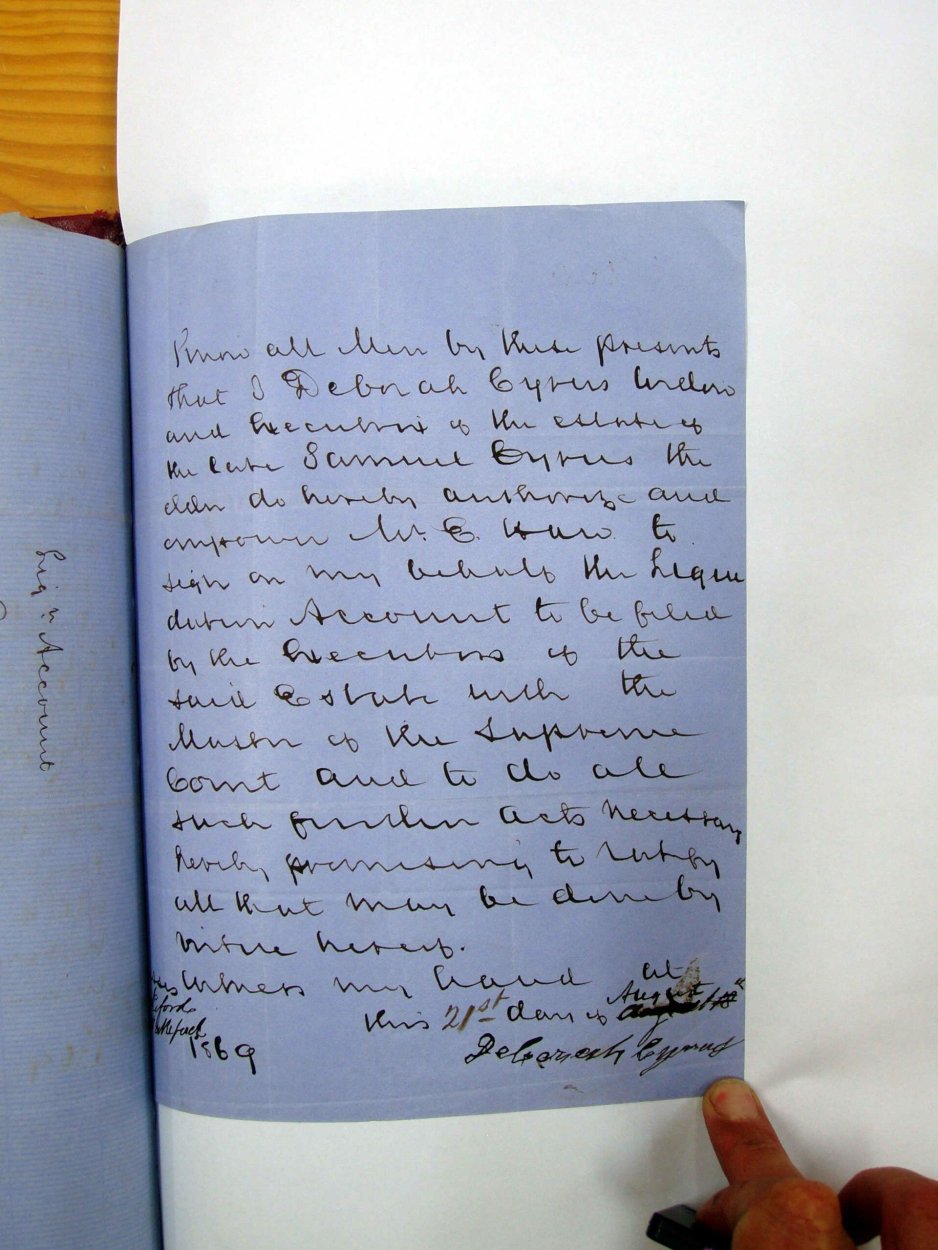 Know all Men by these presents
that I Deborah Cyrus Widow
and Executrix of the estate of
the late Samuel Cyrus the
elder do hereby authorize and
empower Mr. C. Huw to
sign on my behalf the Liqui
dation Account to be filed
by the Executors of the
said Estate with the
Master of the Supreme
Court and to do all
such further acts necessary
hereby promising to ratify
all that may be done by
virtue hereof.
Witness my hand at
this 21st day of August
1869
Deborah Cyrus
Liqn Account